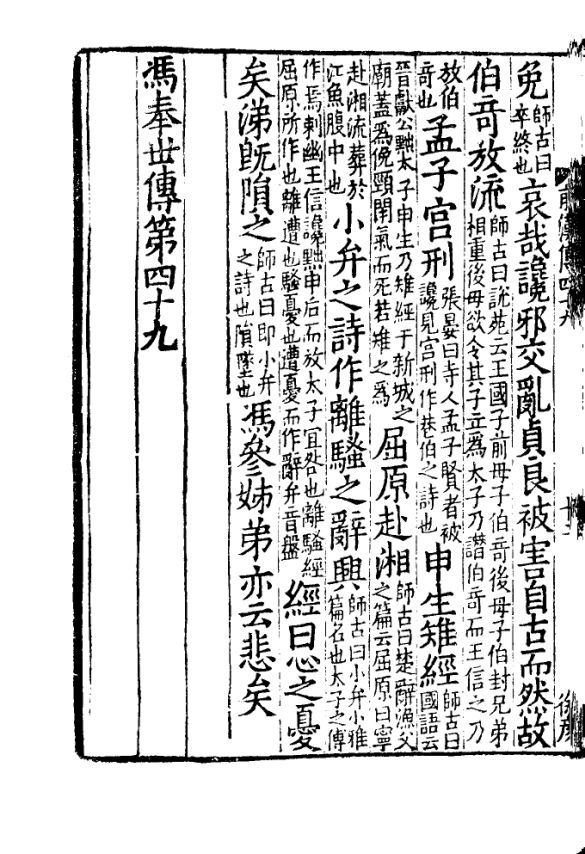 免師古曰卒終也哀哉讒邪交亂貞良被害自古而然故
伯竒放流師古曰說苑云王國子前母子伯竒後母子伯封兄弟相重後母欲令其子立爲太子乃譖伯竒而王信之乃
放伯竒也孟子宫刑張晏曰寺人孟子賢者被讒見宫刑作巷伯之詩也申生雉經師古曰國語云
晉獻公黜太子申生乃雉經于新城之廟蓋爲俛頸閉氣而死若雉之爲屈原赴湘師古曰楚辭漁父之篇云屈原曰寧
赴湘流葬於江魚腹中也小弁之詩作離騷之辭興師古曰小弁小雅篇名也太子之傅
作焉刺幽王信讒黜申后而放太子冝咎也離騷經屈原所作也離遭也騷憂也遭憂而作辭弁音盤經曰心之憂
矣涕旣隕之師古曰即小弁之詩也隕墜也馮參姊弟亦云悲矣
馮奉世傳第四十九